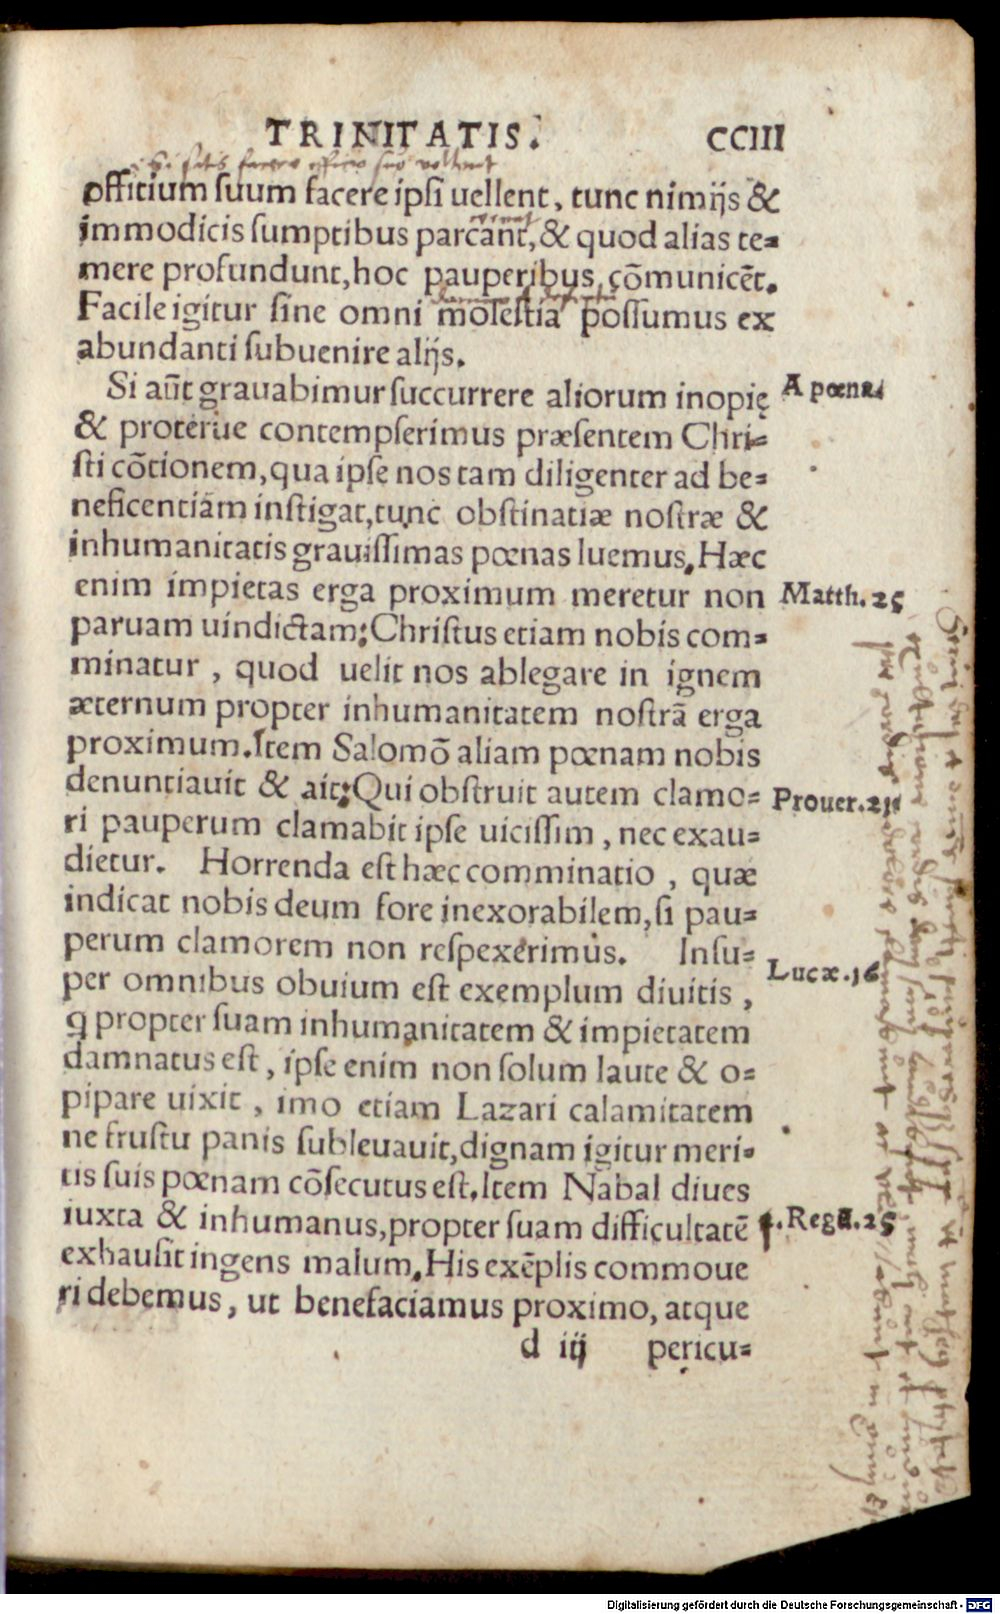 TRINITATIS. CCIII
offitium suum facere ipsi uellent, tunc nimijs &
immodicis sumptibus parcant, & quod alias te=
mere profundunt, hoc pauperibus cõmunicēt.
Facile igitur sine omni molestia possumus ex
abundanti subuenire alijs.
Si aūt grauabimur succurrere aliorum inopię
A pœna.
& proterue contempserimus præsentem Chri=
sti cõtionem, qua ipse nos tam diligenter ad be=
neficentiam instigat, tunc obstinatiæ nostræ &
inhumanitatis grauissimas pœnas luemus. Hæc
enim impietas erga proximum meretur non
Matth. 25
paruam uindictam: Christus etiam nobis com=
minatur, quod uelit nos ablegare in ignem
æternum propter inhumanitatem nostrã erga
proximum. Item Salomõ aliam pœnam nobis
denuntiauit & ait: Qui obstruit autem clamo=
Prouer. 21
ri pauperum clamabit ipse uicissim, nec exau=
dietur. Horrenda est hæc comminatio, quæ
indicat nobis deum fore inexorabilem, si pau=
perum clamorem non respexerimus. Insu=
per omnibus obuium est exemplum diuitis,
Lucæ. 16
q propter suam inhumanitatem & impietatem
damnatus est, ipse enim non solum laute & o=
pipare uixit, imo etiam Lazari calamitatem
ne frustu panis subleuauit, dignam igitur meri=
tis suis pœnam cõsecutus est. Item Nabal diues
iuxta & inhumanus, propter suam difficultatē
1. Reg. 25
exhausit ingens malum. His exēplis commoue
ri debemus, ut benefaciamus proximo, atque
d iij pericu=
Digitalisierung gefördert durch die Deutsche Forschungsgemeinschaft - DFG